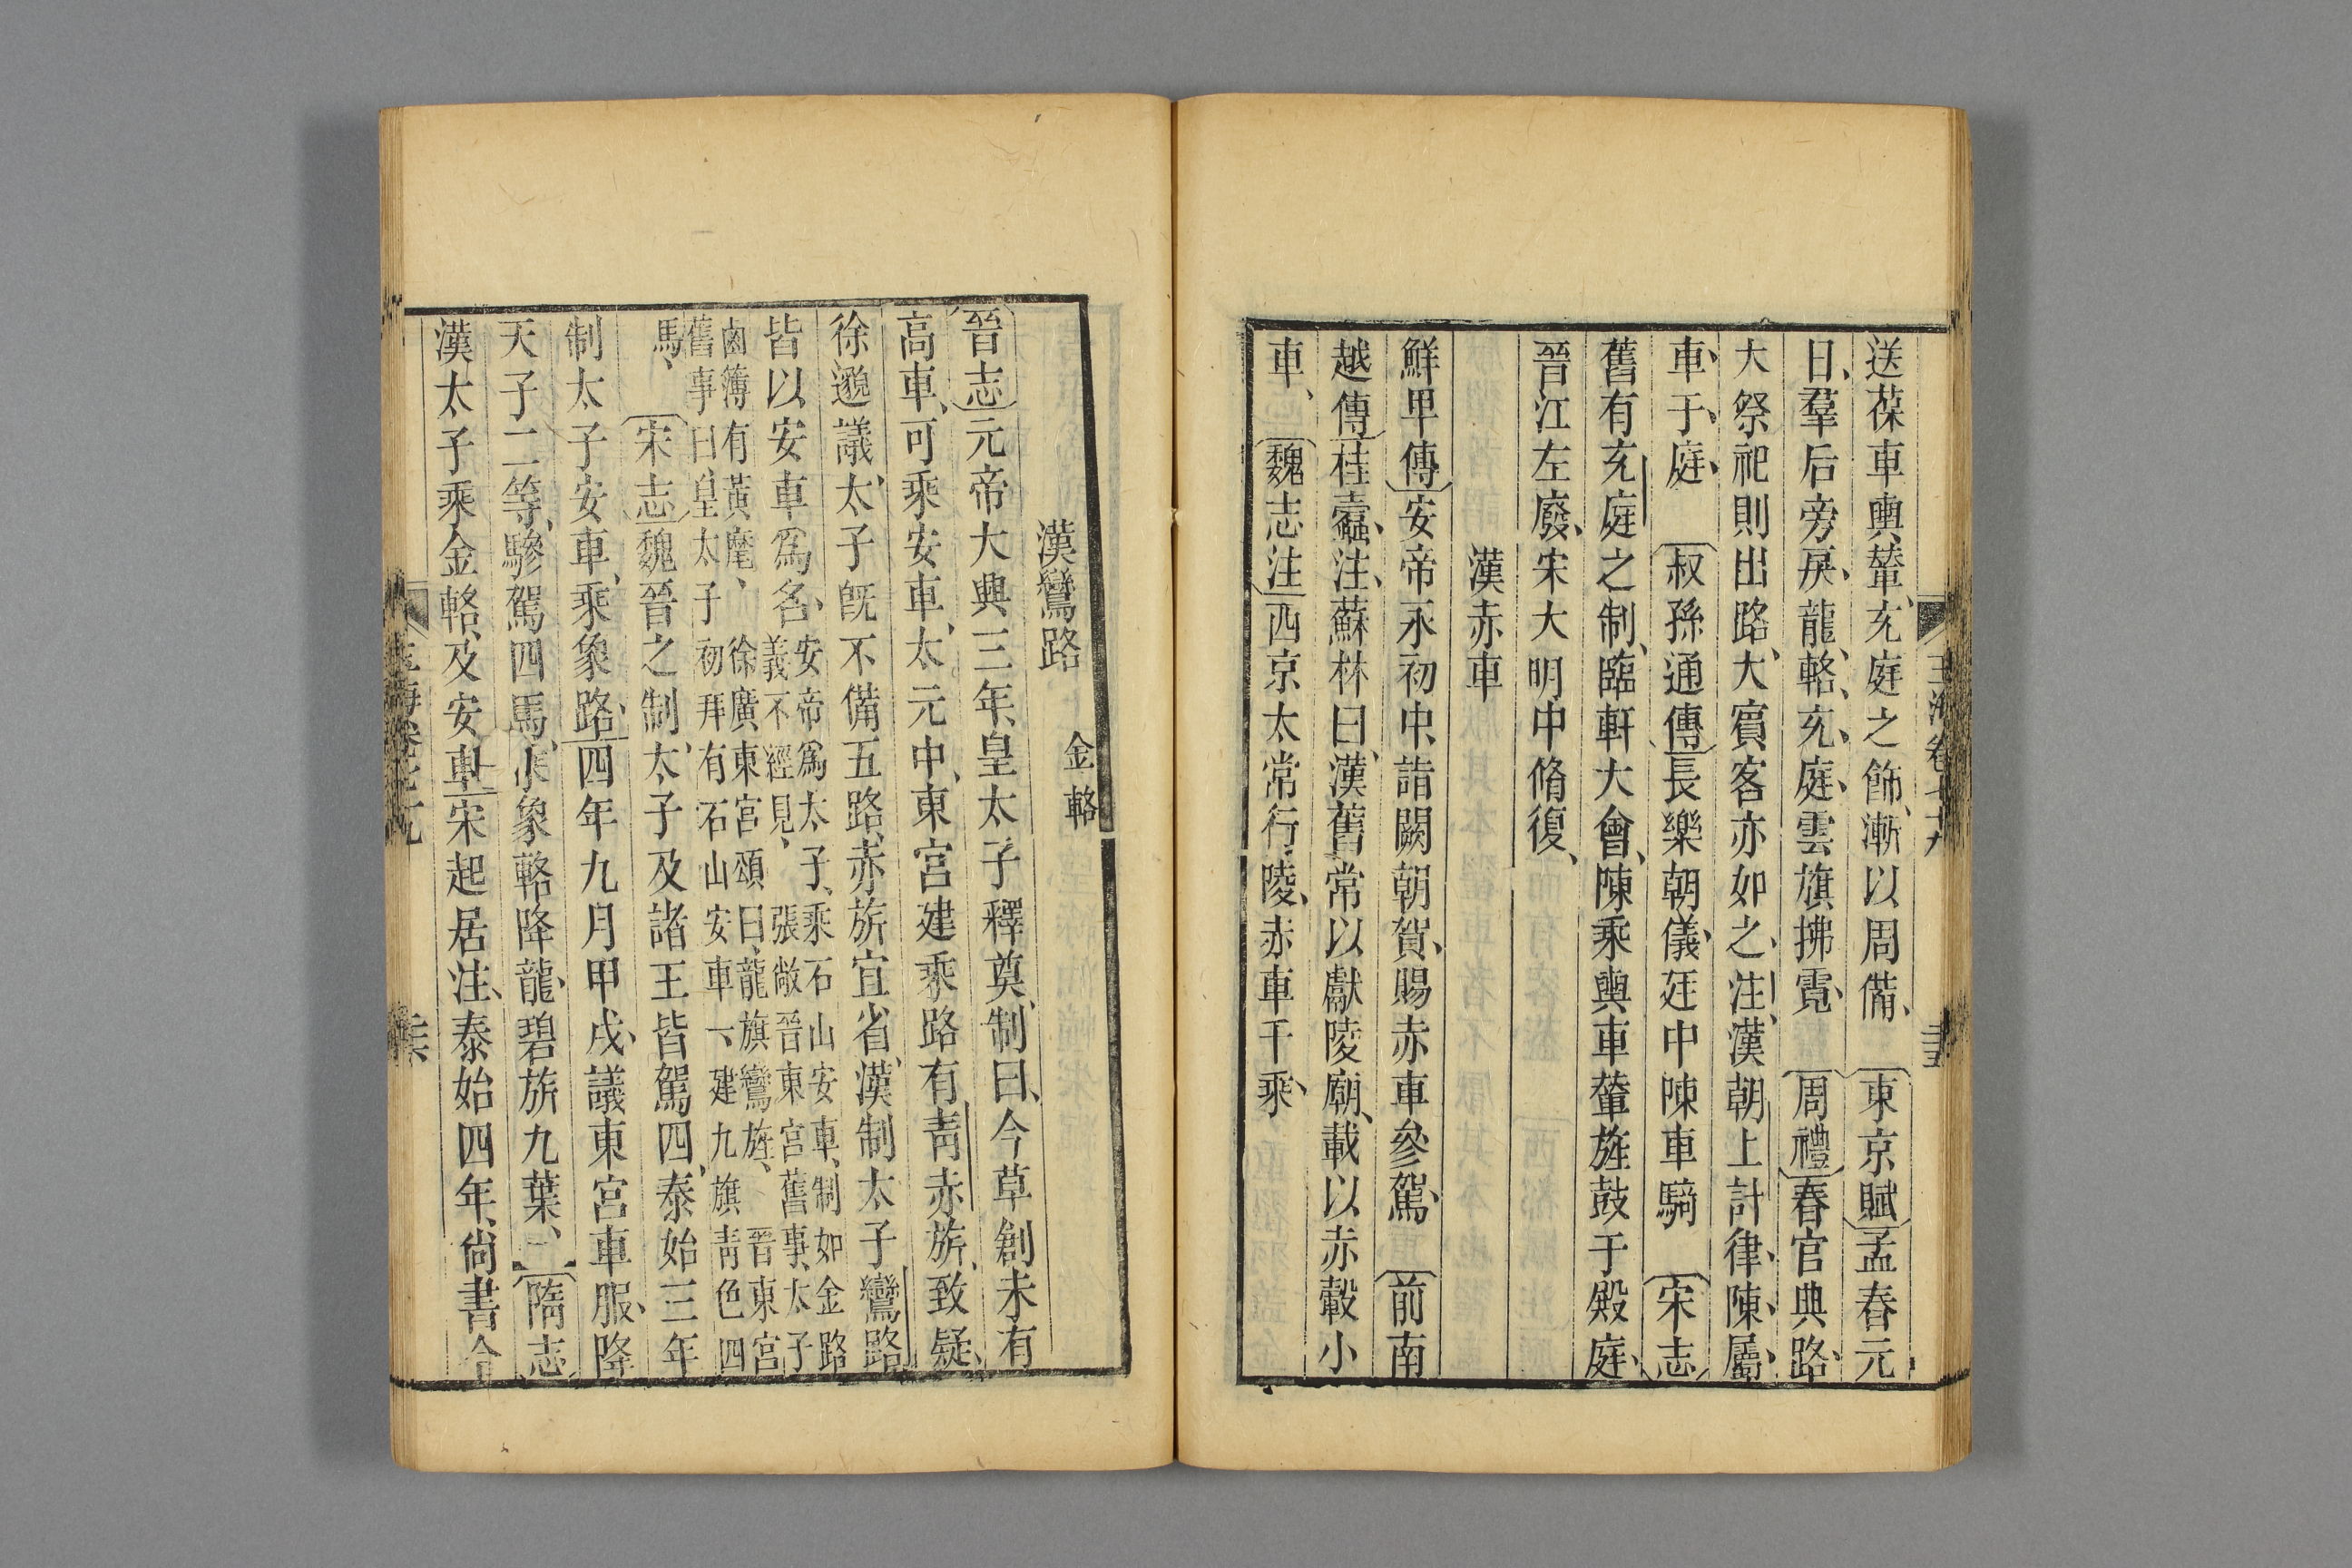 送葆車輿輦充庭之飾漸以周備 東京賦孟春元
日羣后旁戾龍輅充庭雲旗拂霓 周禮春官典路
大祭祀則出路大賓客亦如之注漢朝上計律陳屬
車于庭 叔孫通傳長樂朝儀廷中陳車騎 宋志
舊有充庭之制臨軒大會陳乘輿車輦旌鼓于殿庭
晉江左廢宋大明中脩復
漢赤車
鮮卑傳安帝永初中詣闕朝賀賜赤車參駕 前南
越傳桂蠹注蘇林曰漢舊常以獻陵廟載以赤轂小
車 魏志注西京太常行陵赤車千乘
漢鸞路 金輅
晉志元帝大興三年皇太子釋奠制曰今草創未有
高車可乘安車太元中東宮建乘路有青赤旂致疑
徐邈議太子旣不備五路赤旂宜省漢制太子鸞路
皆以安車爲名 安帝爲太子乘石山安車制如金路
義不經見張敞晉東宮舊事太子
鹵簿有黃麾 徐廣東宮頌曰龍旗鸞旌 晉東宮
舊事曰皇太子初拜有石山安車一建九旗青色四
馬 宋志魏晉之制太子及諸王皆駕四泰始三年
制太子安車乘象路四年九月甲戌議東宮車服降
天子二等驂駕四馬乘象輅降龍碧旂九葉 隋志
漢太子乘金輅及安車宋起居注泰始四年尙書令
玉海卷七十九